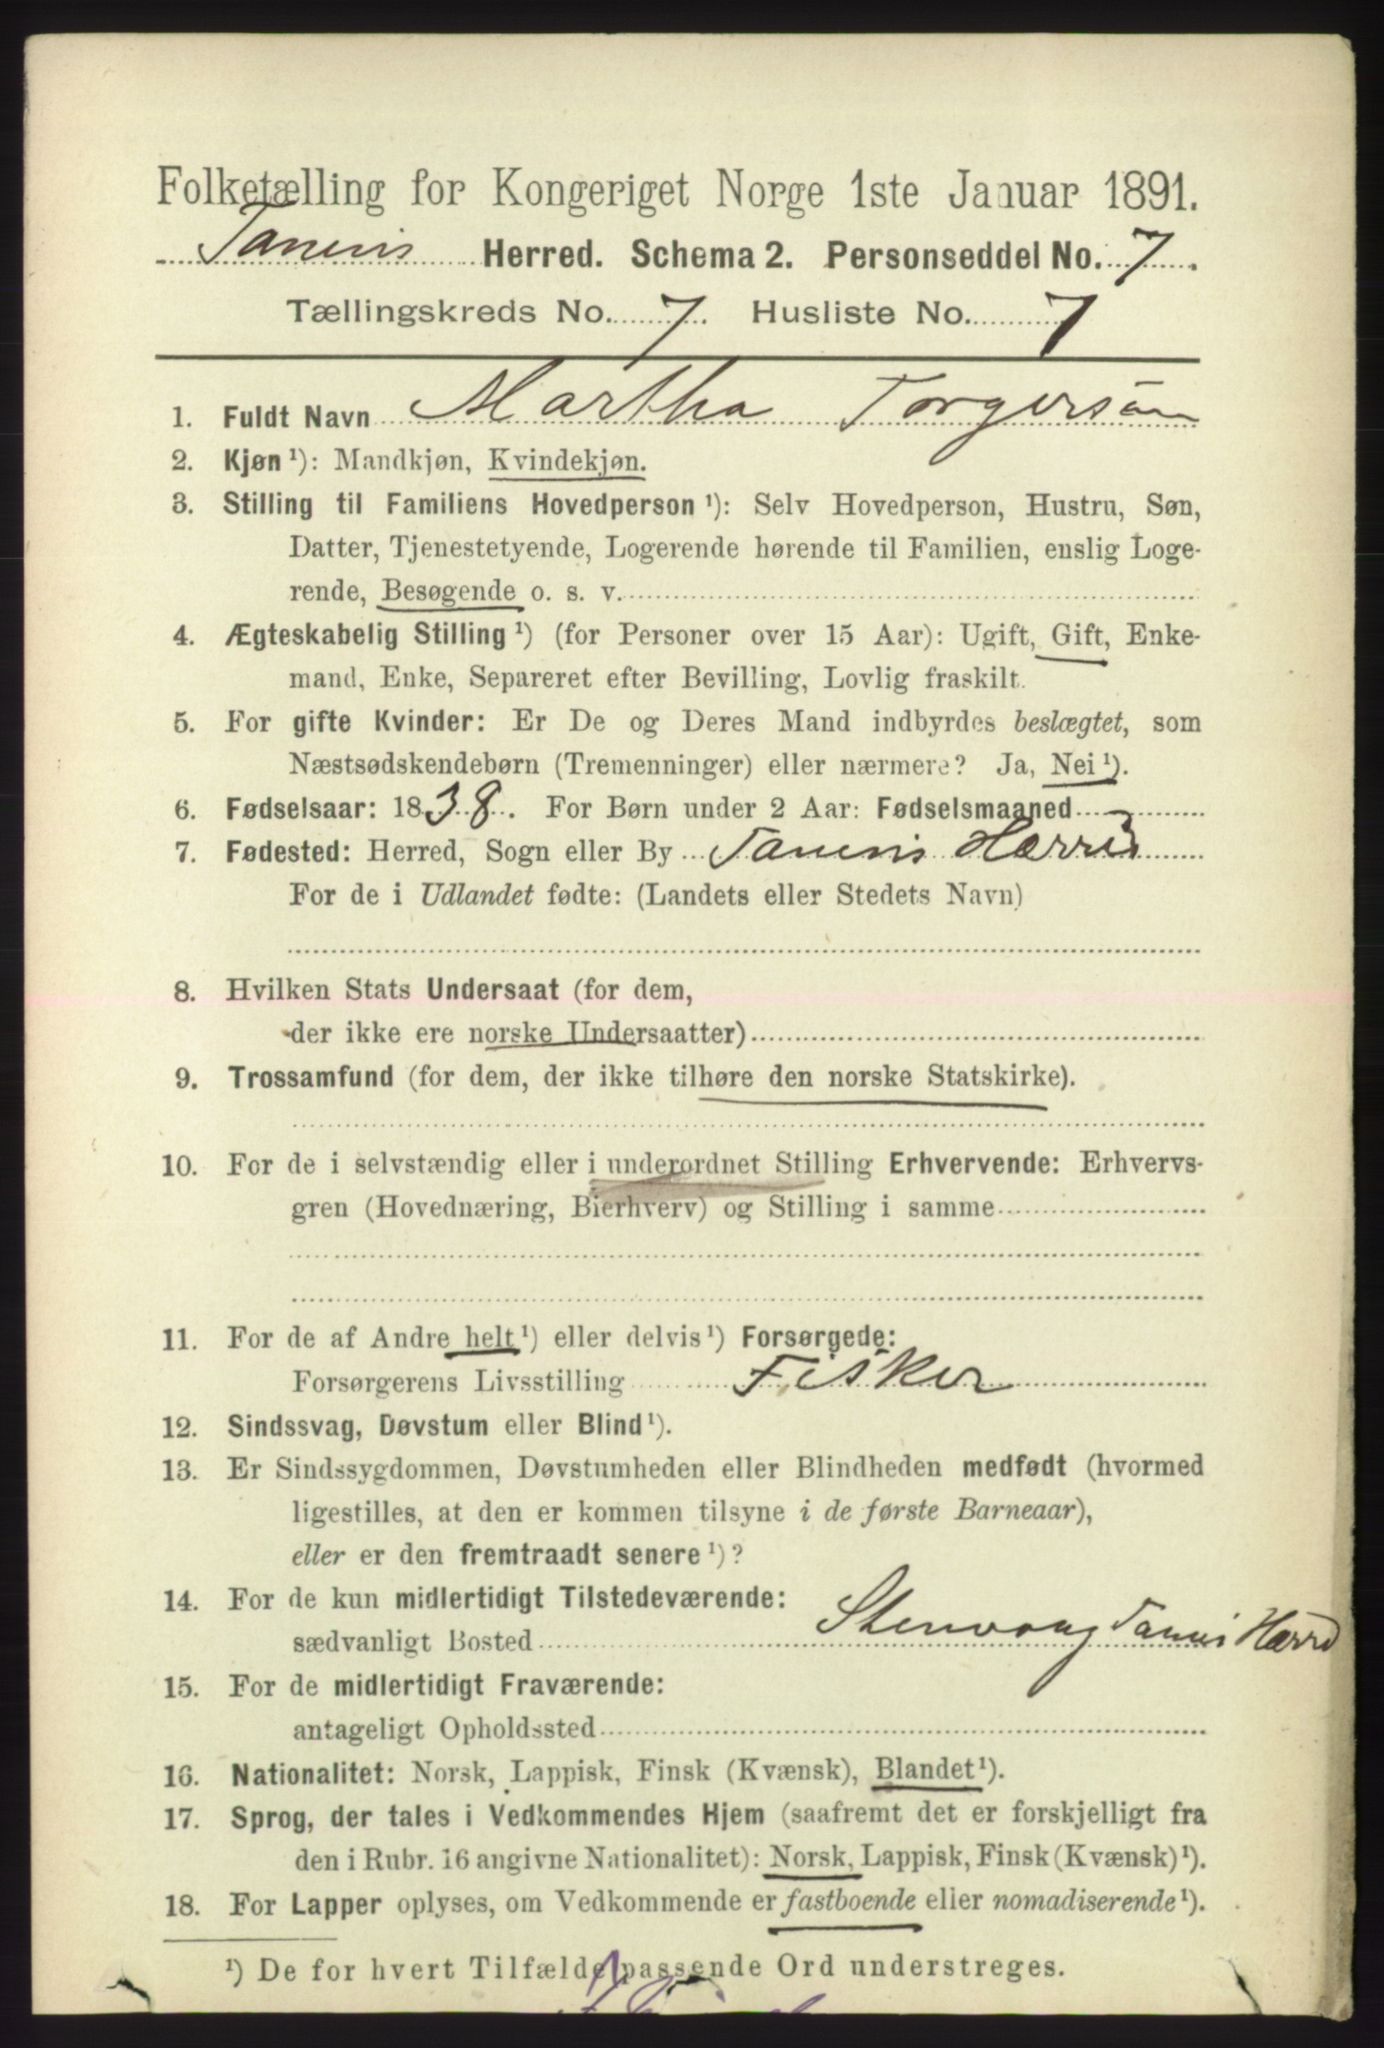 Folketælling for Kongeriget Norge 1ste Januar 1891.
Tanens Herred. Schema 2. Personseddel No. 7.
Tællingskreds No. 7. Husliste No. 7
1. Fuldt Navn Martha Torgersøn
2. Kjøn ¹): Mandkjøn, Kvindekjøn.
3. Stilling til Familiens Hovedperson ¹): Selv Hovedperson, Hustru, Søn,
Datter, Tjenestetyende, Logerende hørende til Familien, enslig Loge-
rende, Besøgende o. s. v.
4. Ægteskabelig Stilling ¹) (for Personer over 15 Aar): Ugift, Gift, Enke-
mand, Enke, Separeret efter Bevilling, Lovlig fraskilt.
5. For gifte Kvinder: Er De og Deres Mand indbyrdes beslægtet, som
Næstsødskendebørn (Tremenninger) eller nærmere? Ja, Nei ¹).
6. Fødselsaar: 1838. For Børn under 2 Aar: Fødselsmaaned
7. Fødested: Herred, Sogn eller By Tanens Hærred
For de i Udlandet fødte: (Landets eller Stedets Navn)
8. Hvilken Stats Undersaat (for dem,
der ikke ere norske Undersaatter)
9. Trossamfund (for dem, der ikke tilhøre den norske Statskirke).
10. For de i selvstændig eller i underordnet Stilling Erhvervende: Erhvervs-
gren (Hovednæring, Bierhverv) og Stilling i samme
11. For de af Andre helt ¹) eller delvis ¹) Forsørgede:
Forsørgerens Livsstilling Fisker
12. Sindssvag, Døvstum eller Blind ¹).
13. Er Sindssygdommen, Døvstumheden eller Blindheden medfødt (hvormed
ligestilles, at den er kommen tilsyne i de første Barneaar),
eller er den fremtraadt senere ¹)?
14. For de kun midlertidigt Tilstedeværende:
sædvanligt Bosted Stenvaag Tanens Hærred
15. For de midlertidigt Fraværende:
antageligt Opholdssted
16. Nationalitet: Norsk, Lappisk, Finsk (Kvænsk), Blandet ¹).
17. Sprog, der tales i Vedkommendes Hjem (saafremt det er forskjelligt fra
den i Rubr. 16 angivne Nationalitet): Norsk, Lappisk, Finsk (Kvænsk) ¹).
18. For Lapper oplyses, om Vedkommende er fastboende eller nomadiserende ¹).
¹) De for hvert Tilfælde passende Ord understreges.